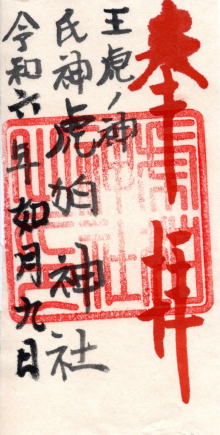 奉拝
王虎ノ神
氏神虎狛神社
令和六年如月九日